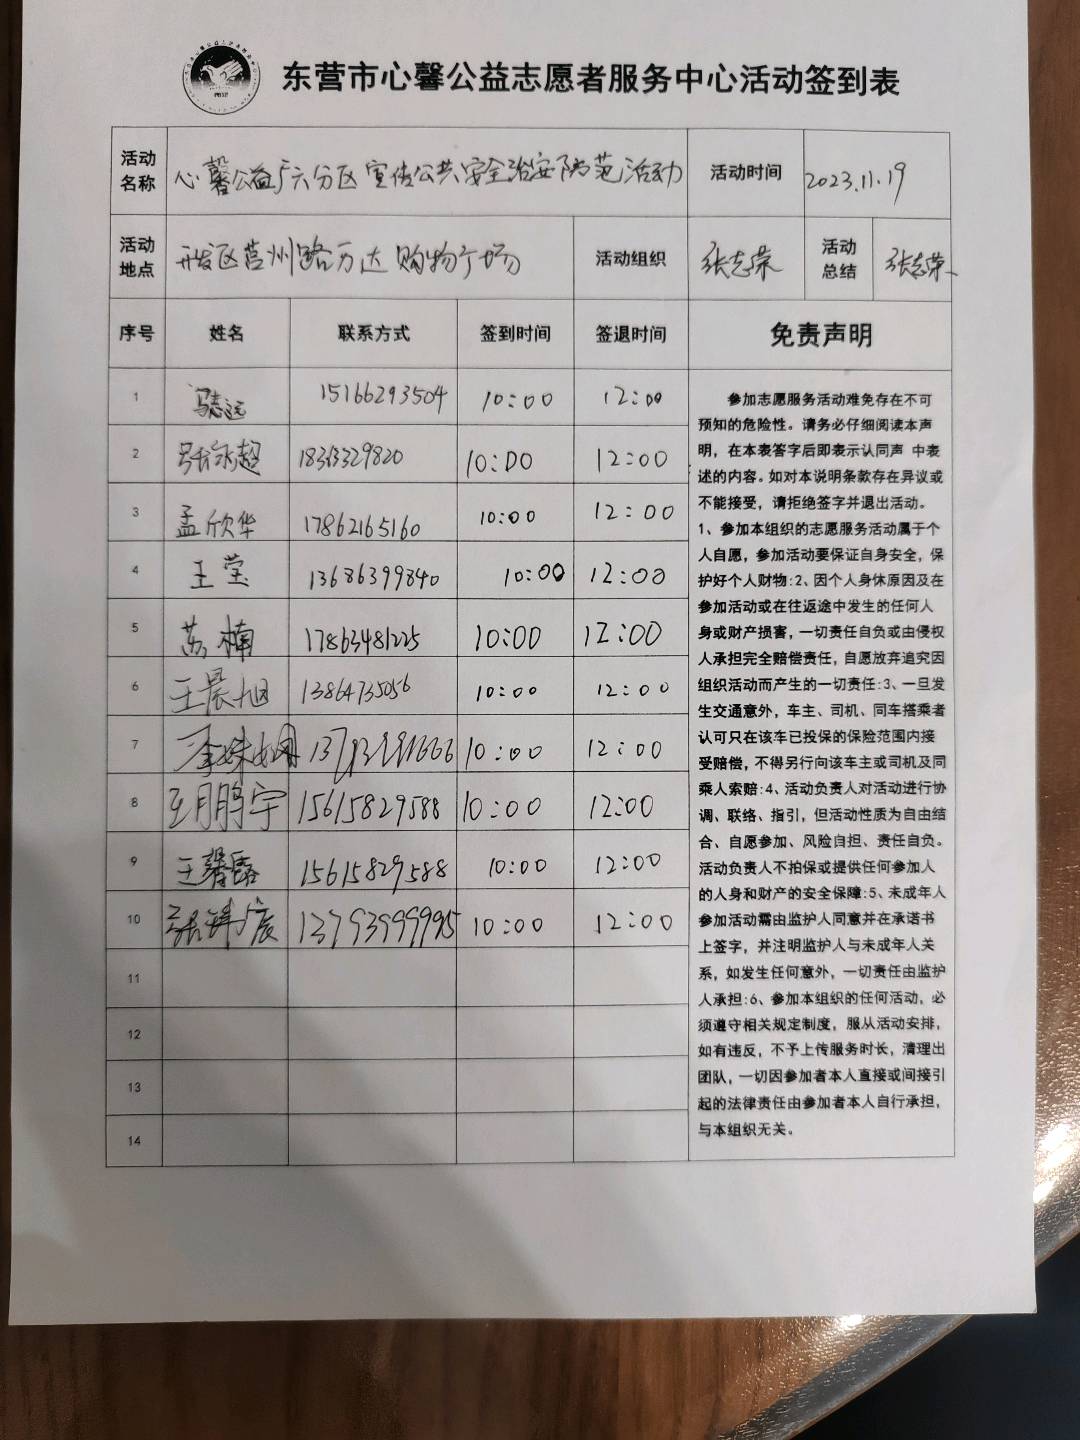 东营市心馨公益志愿者服务中心活动签到表
活动名称 心馨公益广六分区宣传公共安全治安防范活动 活动时间 2023.11.19
活动地点 开发区莒州路万达购物广场 活动组织 张志荣 活动总结 张志荣
序号 姓名 联系方式 签到时间 签退时间 免责声明
1 15166293504 10:00 12:00
2 张永超 18313329820 10:00 12:00
3 孟欣华 17862165160 10:00 12:00
4 王莹 13686399840 10:00 12:00
5 苏楠 17863481225 10:00 12:00
6 王晨旭 13864735056 10:00 12:00
7 10:00 12:00
8 王鹏宇 15615829588 10:00 12:00
9 王馨露 15615829588 10:00 12:00
10 10:00 12:00
11
12
13
14
参加志愿服务活动难免存在不可
预知的危险性。请务必仔细阅读本声
明，在本表签字后即表示认同声 中表
述的内容。如对本说明条款存在异议或
不能接受，请拒绝签字并退出活动。
1、参加本组织的志愿服务活动属于个
人自愿，参加活动要保证自身安全，保
护好个人财物:2、因个人身休原因及在
参加活动或在往返途中发生的任何人
身或财产损害，一切责任自负或由侵权
人承担完全赔偿责任，自愿放弃追究因
组织活动而产生的一切责任:3、一旦发
生交通意外，车主、司机、同车搭乘者
认可只在该车已投保的保险范围内接
受赔偿，不得另行向该车主或司机及同
乘人索赔:4、活动负责人对活动进行协
调、联络、指引，但活动性质为自由结
合、自愿参加、风险自担、责任自负。
活动负责人不拍保或提供任何参加人
的人身和财产的安全保障:5、未成年人
参加活动需由监护人同意并在承诺书
上签字，并注明监护人与未成年人关
系，如发生任何意外，一切责任由监护
人承担:6、参加本组织的任何活动，必
须遵守相关规定制度，服从活动安排，
如有违反，不予上传服务时长，清理出
团队，一切因参加者本人直接或间接引
起的法律责任由参加者本人自行承担，
与本组织无关。